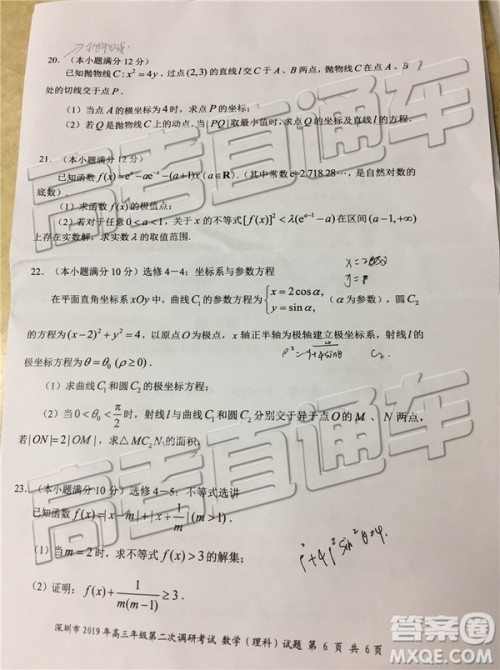 20. (本小题满分 12 分)
已知抛物线 C: x² = 4y, 过点 (2,3) 的直线 l 交 C 于 A、B 两点, 抛物线 C 在点 A、B
处的切线交于点 P.
(1) 当点 A 的横坐标为 4 时, 求点 P 的坐标;
(2) 若 Q 是抛物线 C 上的动点, 当 |PQ| 取最小值时, 求点 Q 的坐标及直线 l 的方程.
21. (本小题满分 12 分)
已知函数 f(x)=eˣ−ae⁻ˣ−(a+1)x (a∈R). (其中常数 e=2.718 28⋯, 是自然对数的
底数)
(1) 求函数 f(x) 的极值点;
(2) 若对于任意 0<a<1, 关于 x 的不等式 [f(x)]² < λ(e^{a−1}−a) 在区间 (a−1,+∞)
上存在实数解, 求实数 λ 的取值范围.
22. (本小题满分 10 分) 选修 4－4: 坐标系与参数方程
在平面直角坐标系 xOy 中, 曲线 C₁ 的参数方程为 { x = 2cosα, y = sinα, (α 为参数), 圆 C₂
的方程为 (x−2)² + y² = 4, 以原点 O 为极点, x 轴正半轴为极轴建立极坐标系, 射线 l 的
极坐标方程为 θ = θ₀ (ρ ≥ 0).
(1) 求曲线 C₁ 和圆 C₂ 的极坐标方程;
(2) 当 0 < θ₀ < π/2 时, 射线 l 与曲线 C₁ 和圆 C₂ 分别交于异于点 O 的 M、N 两点,
若 |ON| = 2|OM|, 求 △MC₂N 的面积.
23. (本小题满分 10 分) 选修 4－5: 不等式选讲
已知函数 f(x) = |x−m| + |x + 1/m| (m>1).
(1) 当 m = 2 时, 求不等式 f(x) > 3 的解集;
(2) 证明: f(x) + 1/(m(m−1)) ≥ 3.
深圳市 2019 年高三年级第二次调研考试 数学 (理科) 试题 第 6 页 共 6 页
高考直通车
高考直通车
高考直通车
答案圈
MXQE.COM